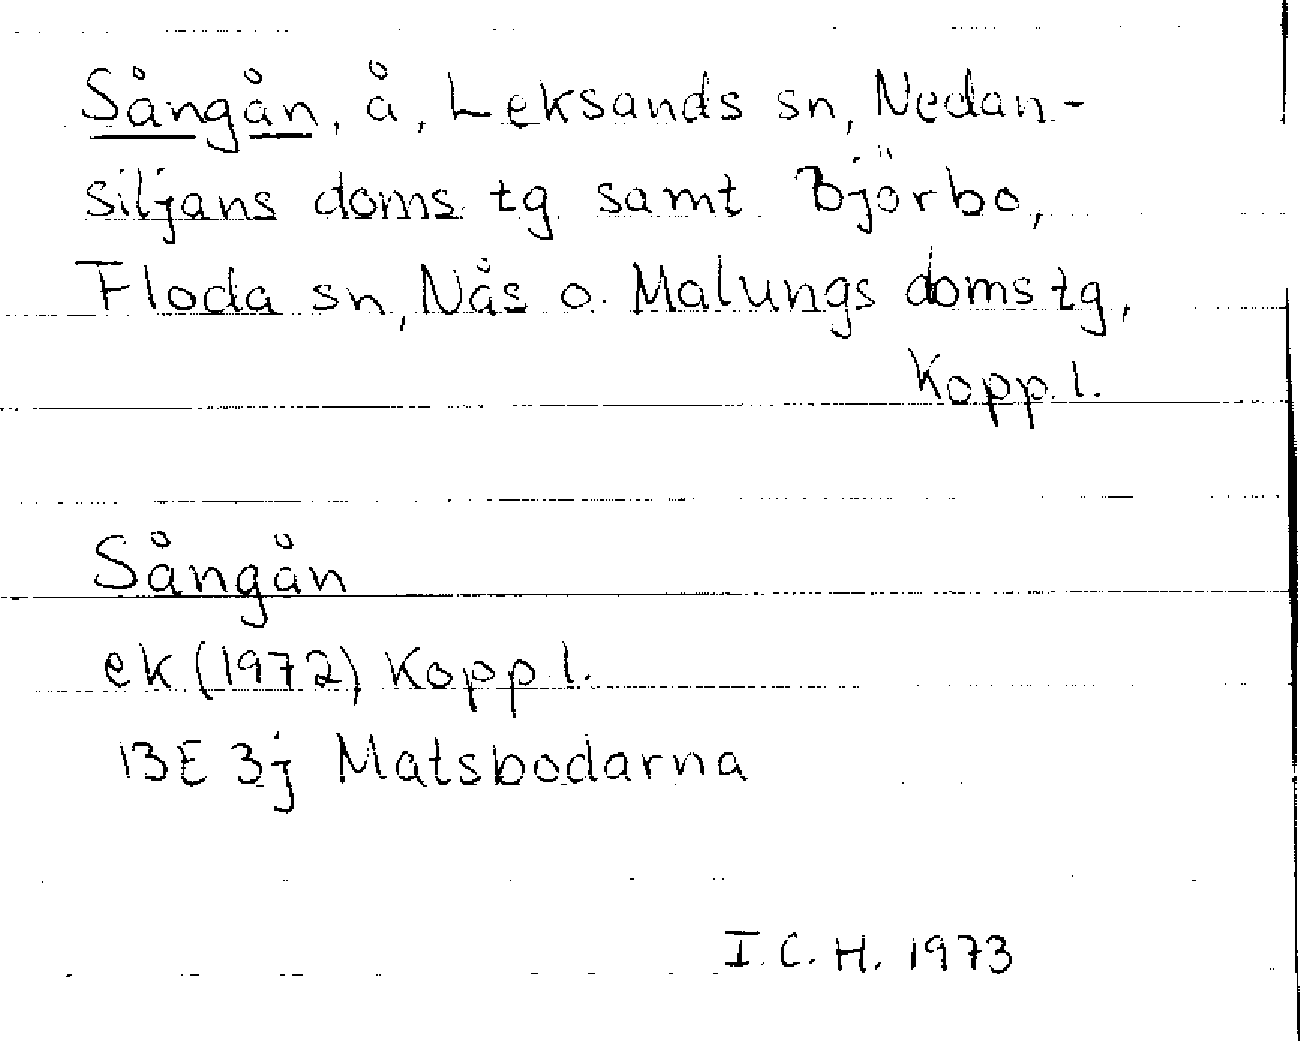 Sångån, å, Leksands sn, Nedan-
siljans doms. tg samt Björbo,
Floda sn, Nås o. Malungs doms tg,
Kopp. l.
Sångån
ek (1972) Kopp l.
13E 3j Matsbodarna
I. C. H. 1973